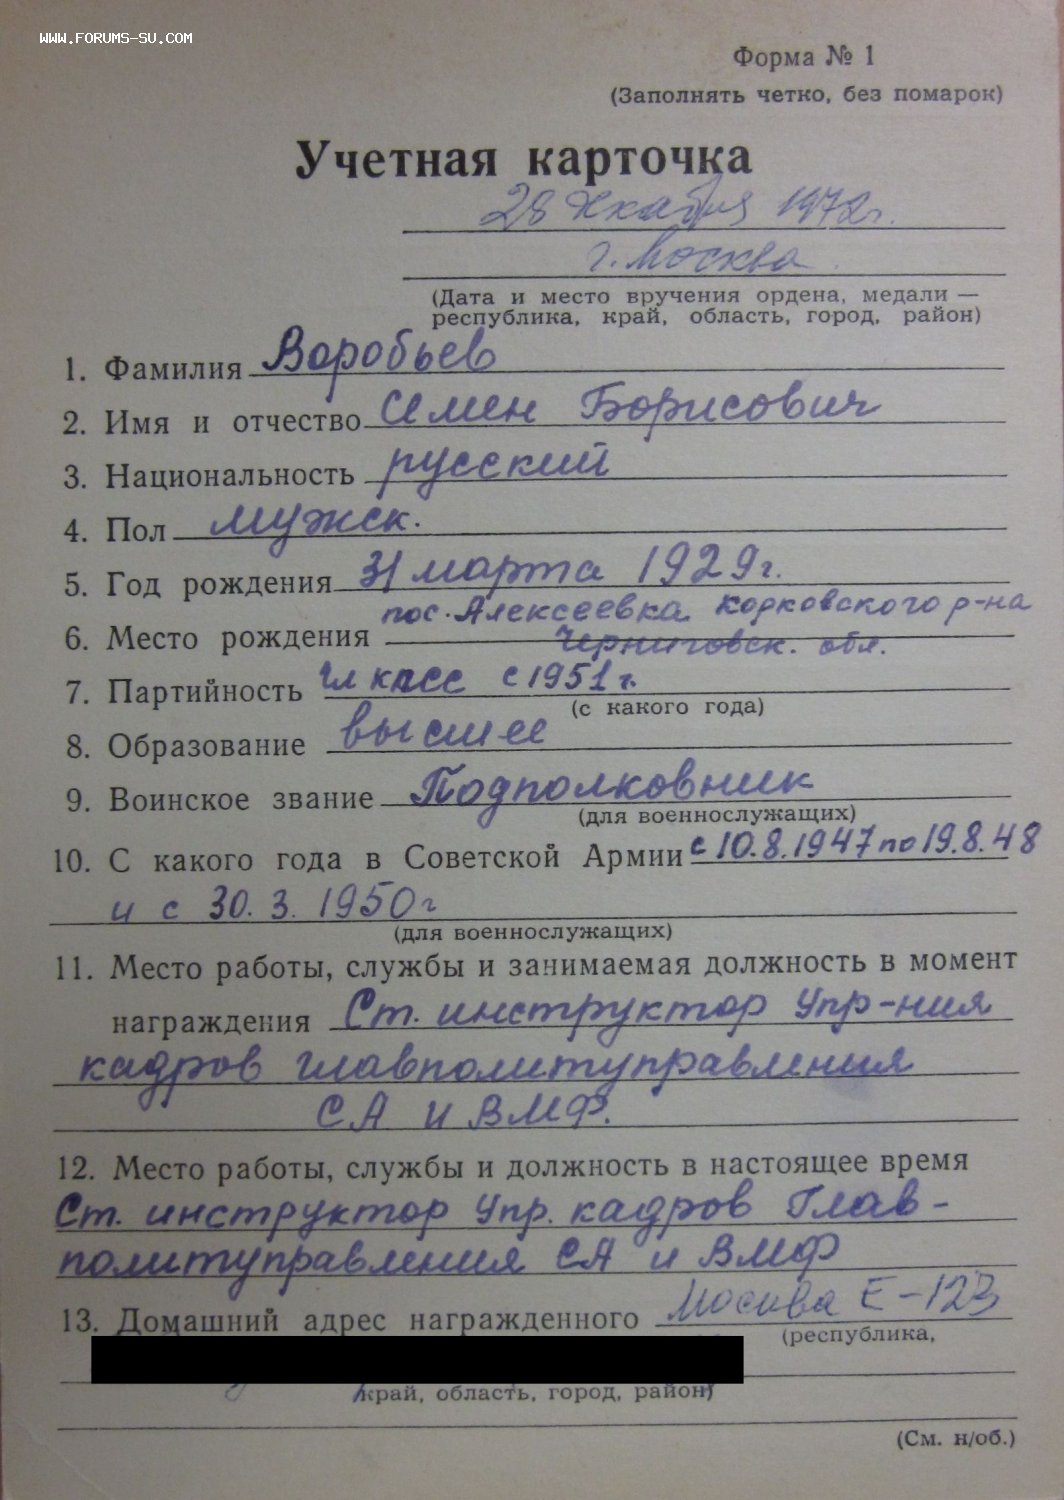 WWW.FORUMS-SU.COM
Форма № 1
(Заполнять четко, без помарок)
Учетная карточка
28 декабря 1972г.
г. Москва
(Дата и место вручения ордена, медали —
республика, край, область, город, район)
1. Фамилия Воробьев
2. Имя и отчество Семен Борисович
3. Национальность русский
4. Пол мужск.
5. Год рождения 31 марта 1929г.
пос. Алексеевка Корковского р-на
6. Место рождения Черниговск. обл.
7. Партийность Чл КПСС с 1951 г.
(с какого года)
8. Образование высшее
9. Воинское звание Подполковник
(для военнослужащих)
10. С какого года в Советской Армии с 10.8.1947 по 19.8.48
и с 30.3.1950г
(для военнослужащих)
11. Место работы, службы и занимаемая должность в момент
награждения Ст. инструктор Упр-ния
кадров Главполитуправления
СА и ВМФ.
12. Место работы, службы и должность в настоящее время
Ст. инструктор Упр. кадров Глав-
политуправления СА и ВМФ
13. Домашний адрес награжденного Москва Е-123
(республика,
край, область, город, район)
(См. н/об.)